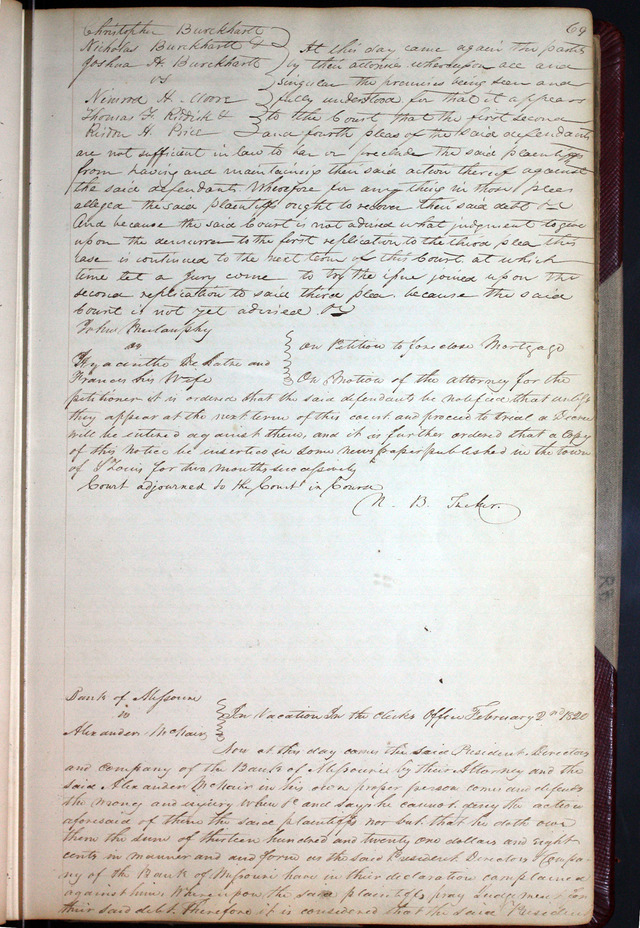 69
Christopher Burckhartt
Nicholas Burckhartt &
Joshua H. Burckhartt
vs
Nimrod H. Moore
Thomas F. Riddick &
Risdon H. Price
At this day came again the parties
by their attornies whereupon all and
singular the premises being seen and
fully understood for that it appears
to the Court that the first second
and fourth pleas of the said defendants
are not sufficient in law to bar or preclude the said plaintiffs
from having and maintaining their said action thereof against
the said defendants Wherefore for any thing in those pleas
alleged the said plaintiffs ought to recover their said debt &c
And because the said Court is not advised what judgment to give
upon the demurrer to the first replication to the third plea this
case is continued to the next term of this Court at which
time let a jury come to try the issue joined upon the
second replication to said third plea because the said
Court is not yet advised &c
John
vs
Hyacinthe De and
Frances his Wife
On Petition to foreclose Mortgage
On Motion of the attorney for the
petitioner it is ordered that the said defendants be notified that unless
they appear at the next term of this court and proceed to trial a Decree
will be entered against them, and it is further ordered that a copy
of this notice be inserted in some newspaper published in the town
of St Louis for two months successively
Court adjourned to the Court in Course
N. B. Tucker
Bank of Missouri
vs
Alexander McNair
In Vacation In the Clerks Office February 2nd 1820
Now at this day comes the said President Directors
and company of the Bank of Missouri by their Attorney and the
said Alexander McNair in his own proper person comes and defends
the wrong and injury when &c and says he cannot deny the action
aforesaid of them the said plaintiffs nor but that he doth owe
them the sum of thirteen hundred and twenty one dollars and eight
cents in manner and form as the said President Directors & Compa-
ny of the Bank of Missouri have in their declaration complained
against him: Whereupon the said plaintiffs pray Judgment for
their said debt. Therefore it is considered that the said President